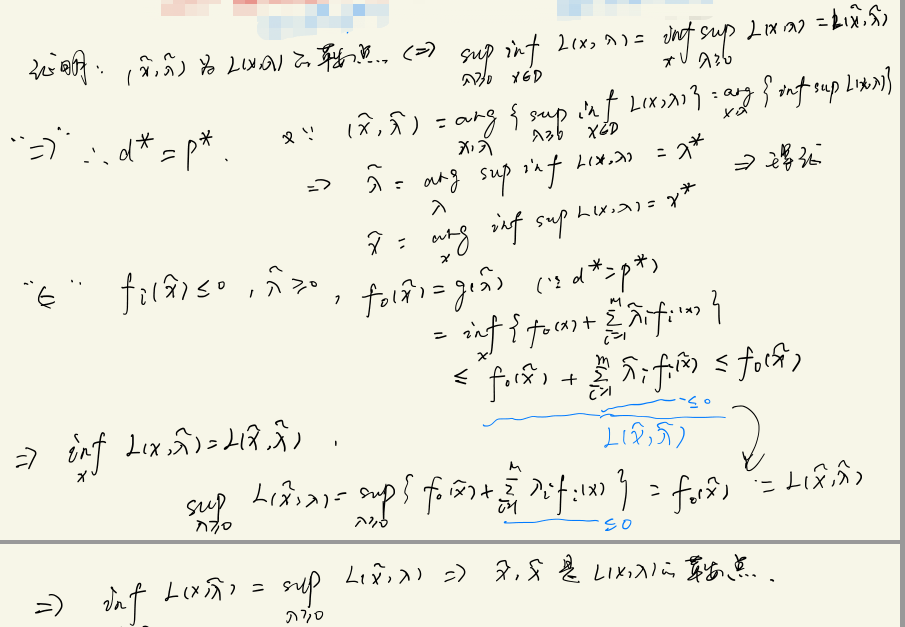 证明: (x̃,λ̃) 为 L(x,λ) 的鞍点 (⇒ sup_{λ≥0} inf_{x∈D} L(x,λ) = inf_x sup_{λ≥0} L(x,λ) = L(x̃,λ̃)
"⇒" ∴ d* = p*. 又∵ (x̃,λ̃) = arg_{x,λ} { sup_{λ≥0} inf_{x∈D} L(x,λ)} = arg_{x,λ} { inf sup L(x,λ)}
⇒ λ̃ = arg_λ sup inf L(x,λ) = λ* ⇒ 得证
x̃ = arg_x inf sup L(x,λ) = x*
"⇐" f_i(x̃) ≤ 0 , λ̃ ≥ 0 , f_0(x̃) = g(λ̃) (∵ d* = p*)
= inf_x { f_0(x) + Σ_{i=1}^m λ̃_i f_i(x) }
≤ f_0(x̃) + Σ_{i=1}^m λ̃_i f_i(x̃) ≤ f_0(x̃)
≤0
L(x̃,λ̃)
⇒ inf_x L(x,λ̃) = L(x̃,λ̃) .
sup_{λ≥0} L(x̃,λ) = sup_{λ≥0} { f_0(x̃) + Σ_{i=1}^m λ_i f_i(x) } = f_0(x̃) = L(x̃,λ̃)
≤0
⇒ inf L(x,λ̃) = sup_{λ≥0} L(x̃,λ) ⇒ x̃, λ̃ 是 L(x,λ) 的鞍点.